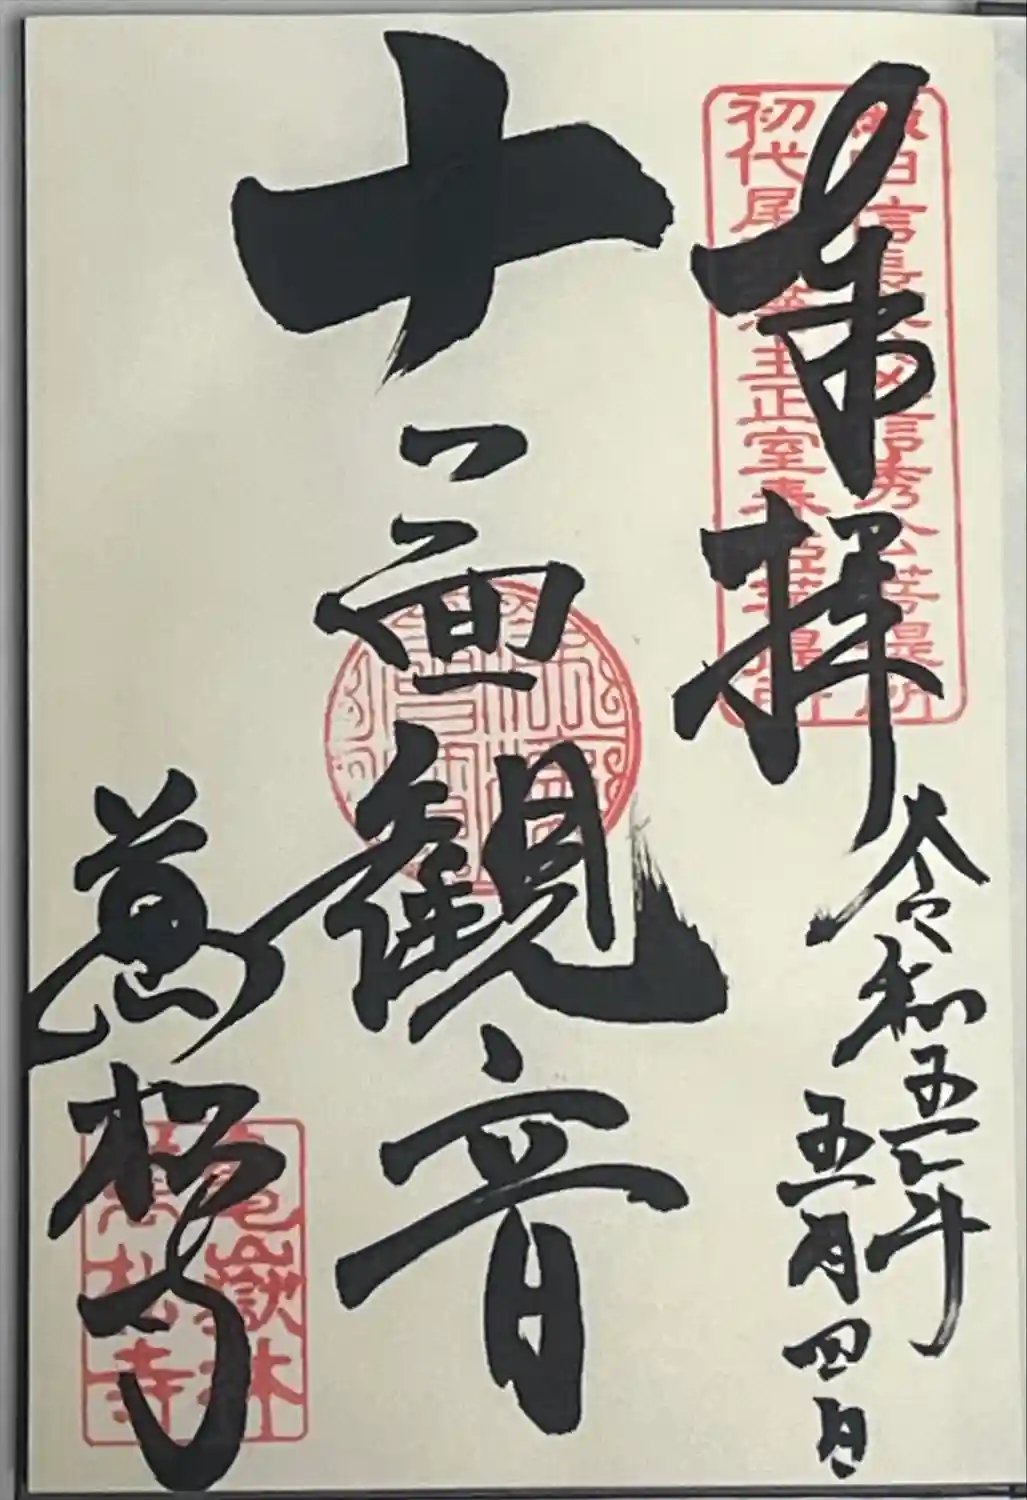 奉拝
織田信長父信秀公菩提所
初代尾張藩主正室春姫菩提所
令和五年
五月四日
十一面観音
萬松寺
亀嶽林
萬松寺